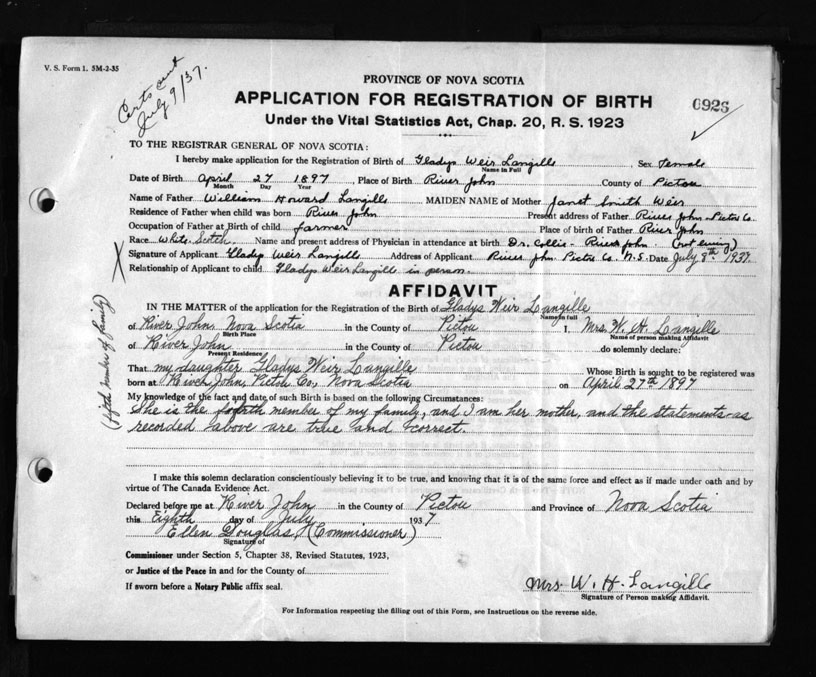 V. S. Form 1. 5M-2-35
Certs sent
July 9/37.
PROVINCE OF NOVA SCOTIA
APPLICATION FOR REGISTRATION OF BIRTH
Under the Vital Statistics Act, Chap. 20, R. S. 1923
TO THE REGISTRAR GENERAL OF NOVA SCOTIA:
I hereby make application for the Registration of Birth of Gladys Weir Langille, Sex Female
Name in Full
Date of Birth April 27 1897, Place of Birth River John County of Pictou
Month Day Year
Name of Father William Howard Langille MAIDEN NAME of Mother Janet Smith Weir
Residence of Father when child was born River John Present address of Father River John Pictou Co.
Occupation of Father at Birth of child farmer Place of birth of Father River John
Race White Scotch Name and present address of Physician in attendance at birth Dr. Collie - River John (not living)
Signature of Applicant Gladys Weir Langille Address of Applicant River John Pictou Co. N.S. Date July 8th 1937
Relationship of Applicant to child Gladys Weir Langille in person.
AFFIDAVIT
IN THE MATTER of the application for the Registration of the Birth of Gladys Weir Langille
Name in full
of River John, Nova Scotia in the County of Pictou I, Mrs. W. H. Langille
Birth Place Name of person making Affidavit
of River John in the County of Pictou do solemnly declare:
Present Residence
That my daughter Gladys Weir Langille Whose Birth is sought to be registered was
born at River John, Pictou Co, Nova Scotia on April 27th 1897
My knowledge of the fact and date of such Birth is based on the following Circumstances:
(fifth member of family)
She is the fourth member of my family, and I am her mother, and the statements as
recorded above are true and correct.
I make this solemn declaration conscientiously believing it to be true, and knowing that it is of the same force and effect as if made under oath and by
virtue of The Canada Evidence Act.
Declared before me at River John in the County of Pictou and Province of Nova Scotia
this Eighth day of July 1937
Ellen Douglas, (Commissioner)
Signature of
Commissioner under Section 5, Chapter 38, Revised Statutes, 1923,
or Justice of the Peace in and for the County of
If sworn before a Notary Public affix seal.
Mrs W. H. Langille
Signature of Person making Affidavit.
For Information respecting the filling out of this Form, see Instructions on the reverse side.